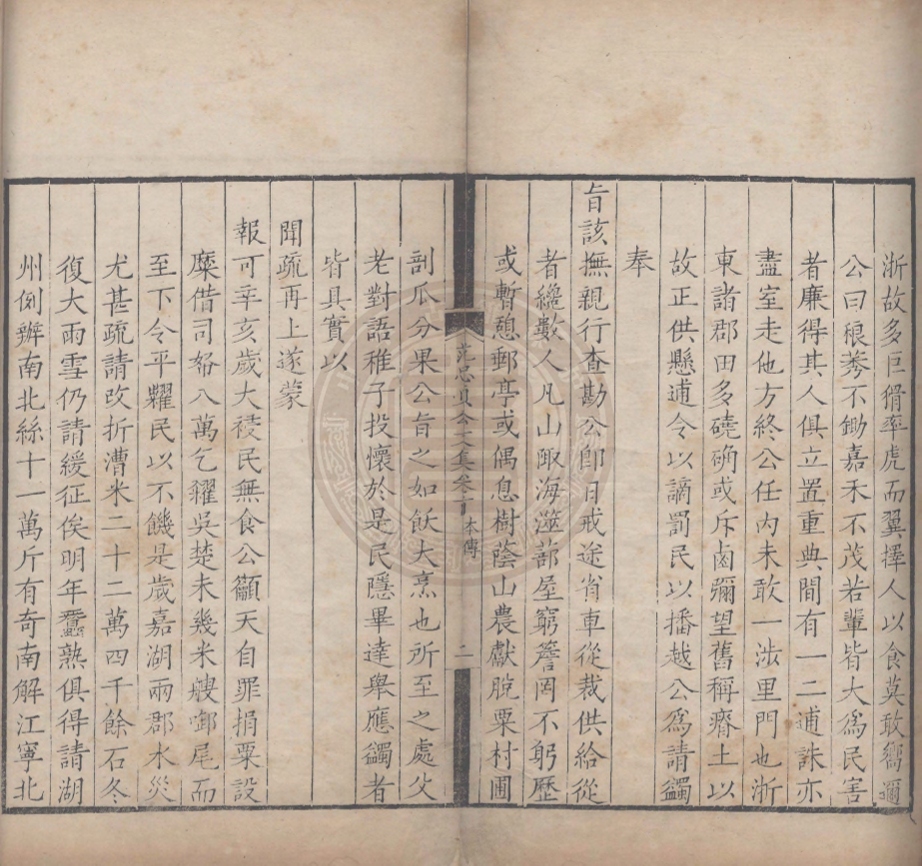 浙故多巨猾率虎而翼擇人以食莫敢嚮邇
公曰稂莠不鋤嘉禾不茂若輩皆大為民害
者廉得其人俱立置重典間有一二逋誅亦
盡室走他方終公任内未敢一涉里門也浙
東諸郡田多磽确或斥鹵彌望舊稱瘠土以
故正供懸逋令以謫罰民以播越公為請蠲
奉
旨該撫親行查勘公卽日戒途省車從裁供給從
者纔數人凡山陬海澨蔀屋窮簷罔不躬歷
或暫憩郵亭或偶息樹蔭山農獻脫粟村圃
范忠貞公文集卷首 本傳 二
剖瓜分果公旨之如飫大烹也所至之處父
老對語稚子投懷於是民隱畢達舉應蠲者
皆具實以
聞疏再上遂蒙
報可辛亥歲大祲民無食公籲天自罪捐粟設
糜借司帑八萬乞糴吳楚未幾米艘啣尾而
至下令平糶民以不饑是歲嘉湖兩郡水災
尤甚疏請改折漕米二十二萬四千餘石冬
復大雨雪仍請緩征俟明年蠶熟俱得請湖
州例辦南北絲十一萬斤有奇南解江寧北